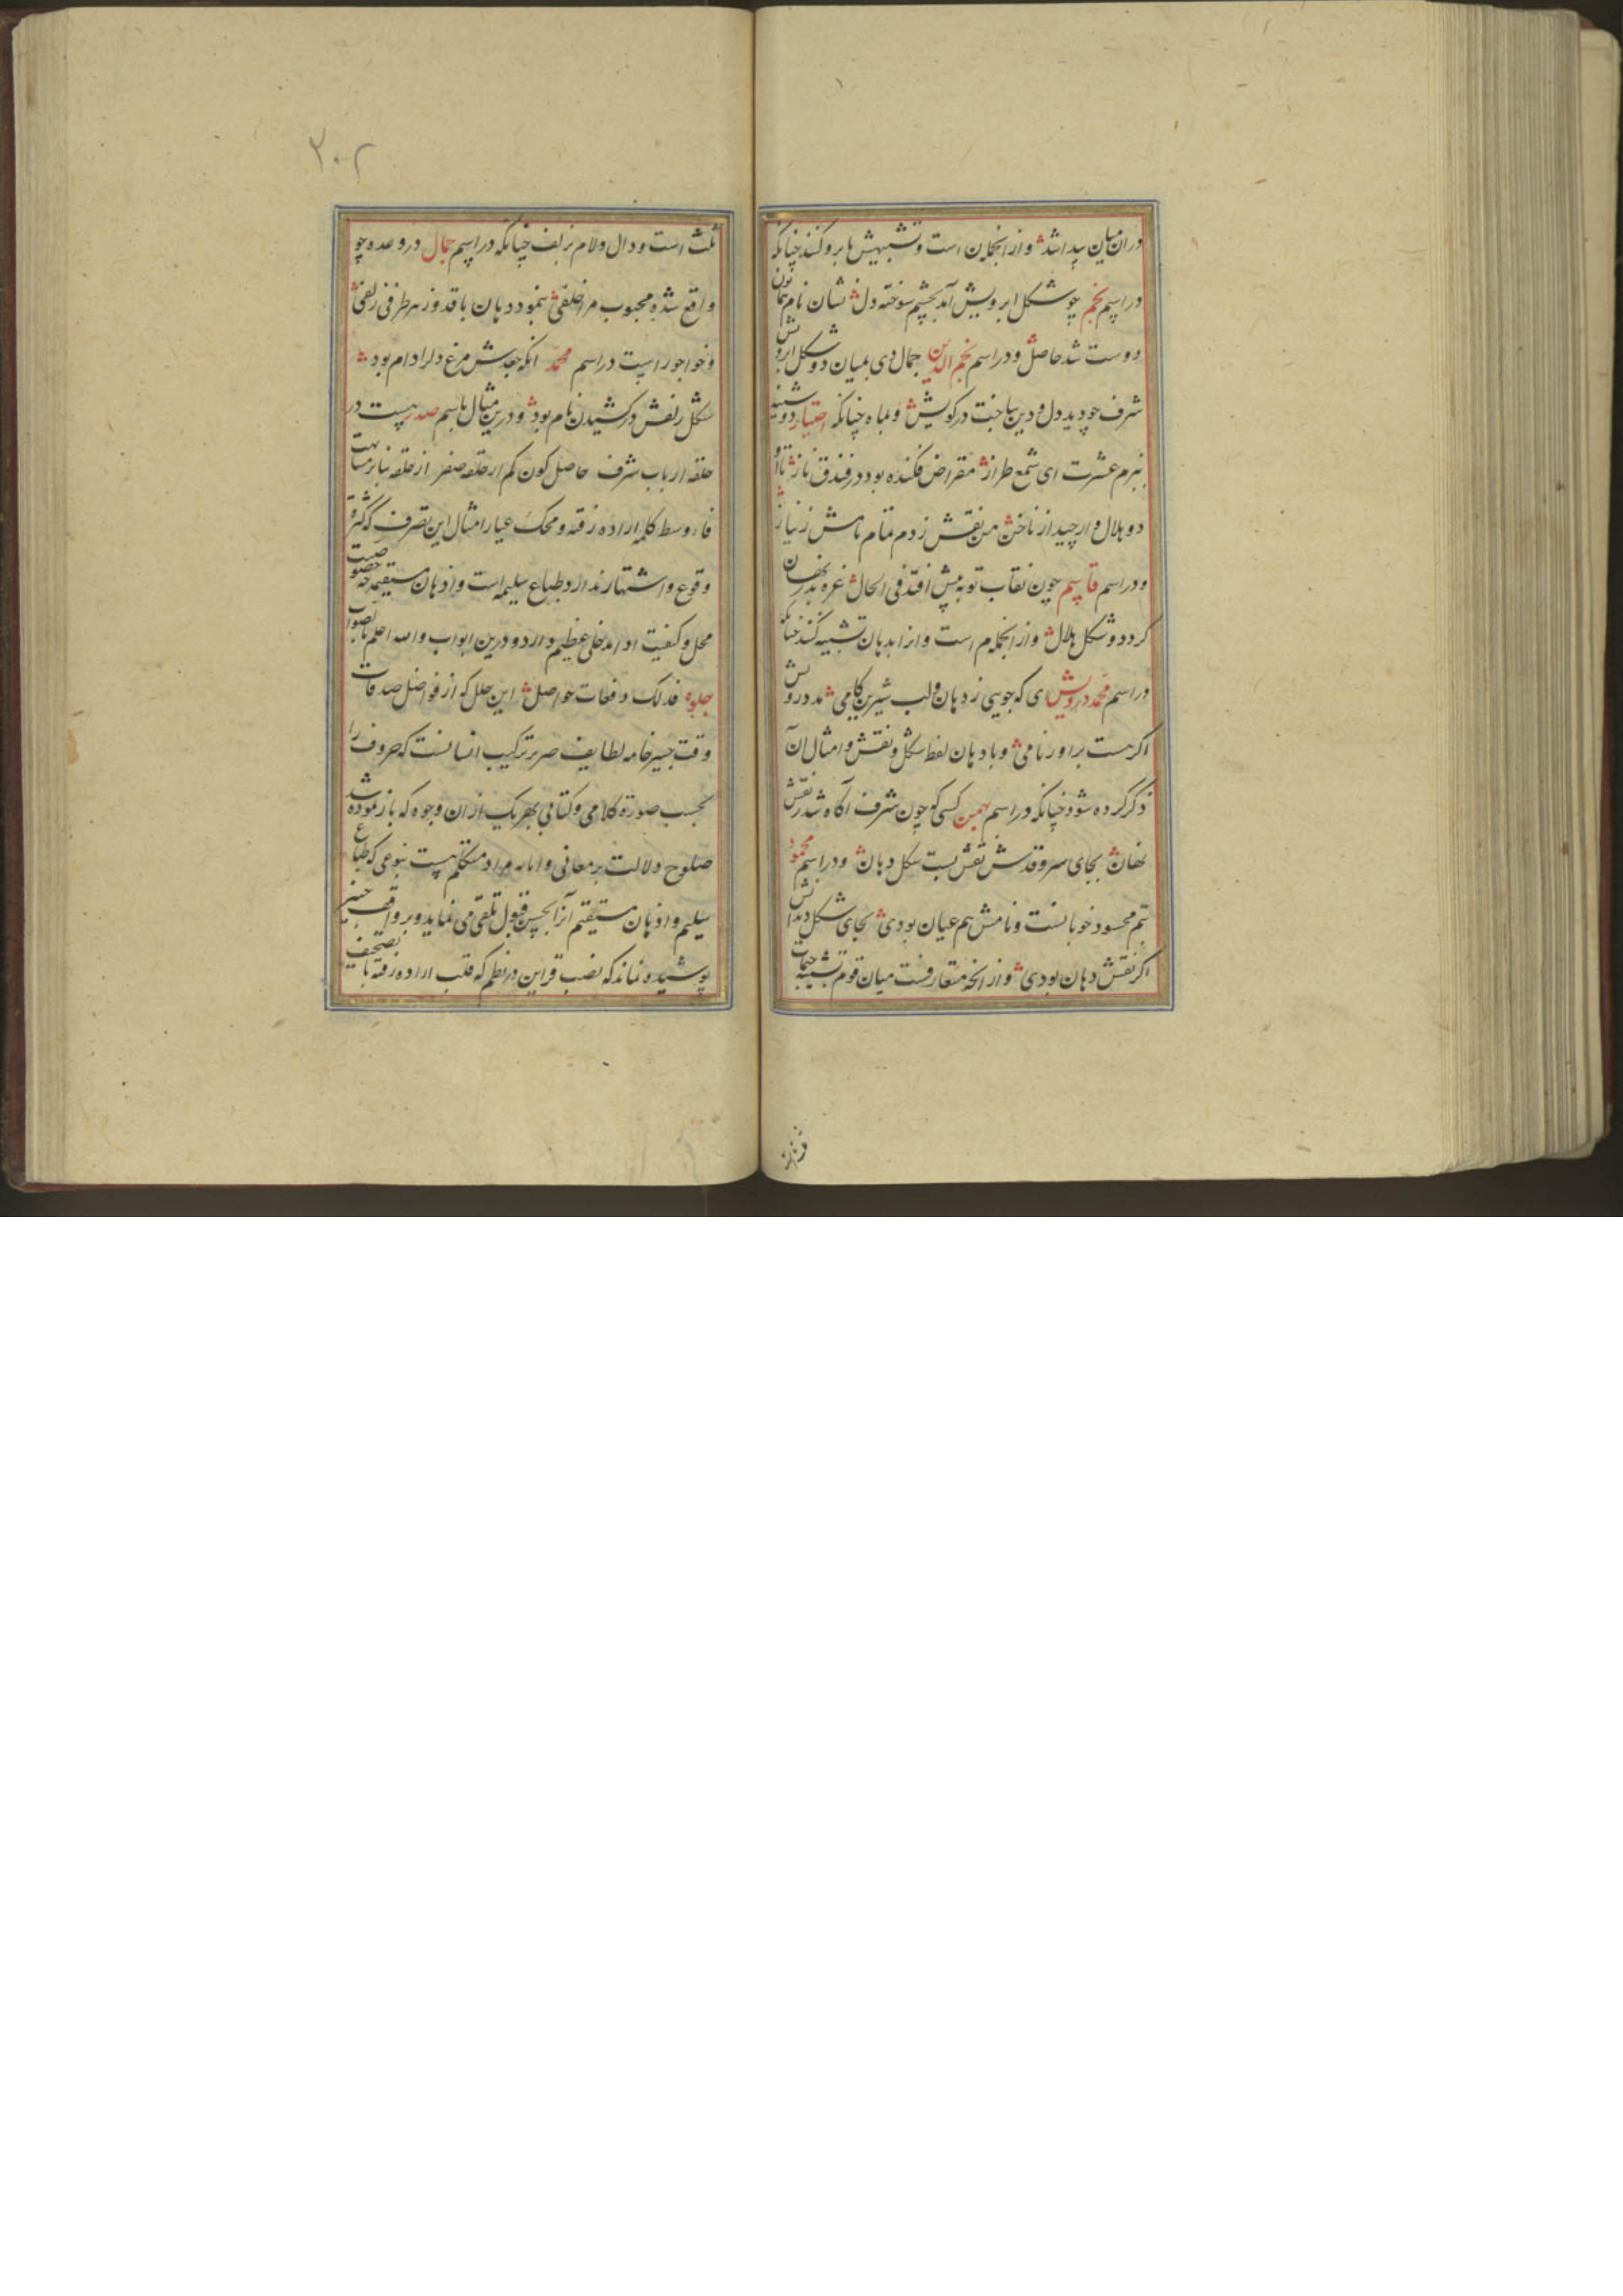 در ان میان پیدا شد ث وازانجمله ن است و تشبیهش بابرو کنند چنانکه
در اسم نجم چو شکل ابرویش آمد بچشم سوخته دل ث نشان نام همان نون
دوست شد حاصل ث ودر اسم نجم الدین جمال دی بمیان دو شکل ابرویش
شرف چو دید دل و دین بباخت در کویش ث وبماه چنانکه اختیار دوشینه
ببزم عشرت ای شمع طراز ث مقراض فکنده بود در فندق ناز ث تا او
دو هلال وار چید از ناخن ث من نقش زدم تمام نامش ز نیاز ث
ودر اسم قاسم چون نقاب تو به پیش افتد فی الحال ث غره بدر نهان
کردد و شکل هلال ث وازانجمله م است وانرا بدهان تشبیه کنند چنانکه
در اسم محمد درویش ای که جویی ز دهان و لب شیرین کامی ث مدد درویش
اکر هست براور نامی ث وبا دهان لفظ شکل و نقش وامثال آن
ذکر کرده شود چنانکه در اسم بهمن کسی کو چون شرف آکاه شد ز نقش
نهان ث بجای سرو قدش نقش بست شکل دهان ث ودر اسم محمود
بتم محسود خوبانست ونامش هم عیان بودی ث بجای شکل دندانش
اکر نقش دهان بودی ث وازانچه متعارفست میان قوم تشبیه جیمات
قرانر
۳۰۲
ثلث است و دال و لام بزلف چنانکه در اسم جمال در وعده چو
واقع شده محبوب مرا خلفی ث بنمود دهان با قد وز هر طرفی زلفی ث
وخواجو راست در اسم محمد انکه جعدش مرغ دلرا دام بود ث
شکل زلفش در کشیدن نام بود ث ودرین مثال باسم صدر پیست در
حلقه ارباب شرف حاصل کون کم از حلقه صفر از حلقه بنابر مشابهت
فا ووسط کلمه اراده رفته ومحک عیار امثال این تصرف که کثرة
وقوع واشتهار ندارد طباع سلیمه است واذهان مستقیمه چه خصوصیت
محل وکیفیت ادا مدخلی عظیم دارد ودرین ابواب والله اعلم بالصواب
جلوه فذلک دفعات حواصل ث این حلل که از فواضل صدقات
وقت جسر خامه لطایف صریر ترکیب انسانست که حروف را
بحسب صورة کلامی وکتابی بهر یک ازان وجوه که باز نموده شد
صلوح دلالت بر معانی وابانه مراد متکلم هست بنوعی که طباع
سلیم واذهان مستقیم آنرا بحسن قبول تلقی می نماید وبر واقف خبیر
پوشیده نماند که نصب قراین در نظم که قلب اراده رفته یا تصحیف